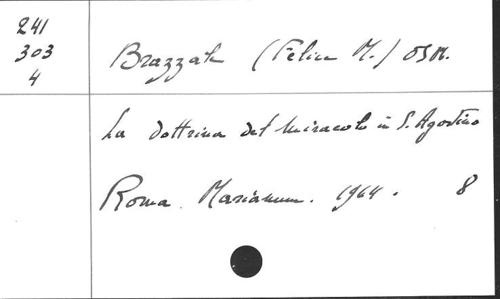 241
303
4
Brazzale (Felice M.) OSM.
La dottrina del miracolo in S. Agostino
Roma. Marianum. 1964. 8